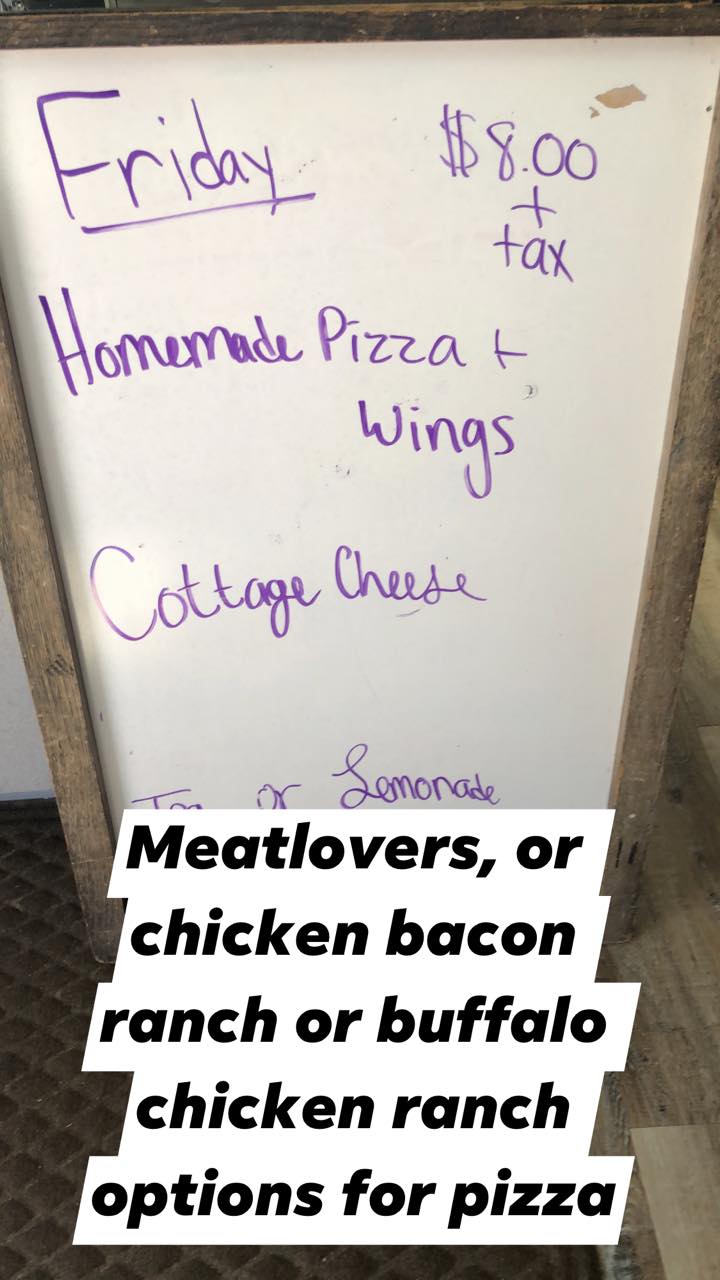 Friday
$8.00
+
tax
Homemade Pizza +
Wings
Cottage Cheese
or Lemonade
Meatlovers, or
chicken bacon
ranch or buffalo
chicken ranch
options for pizza